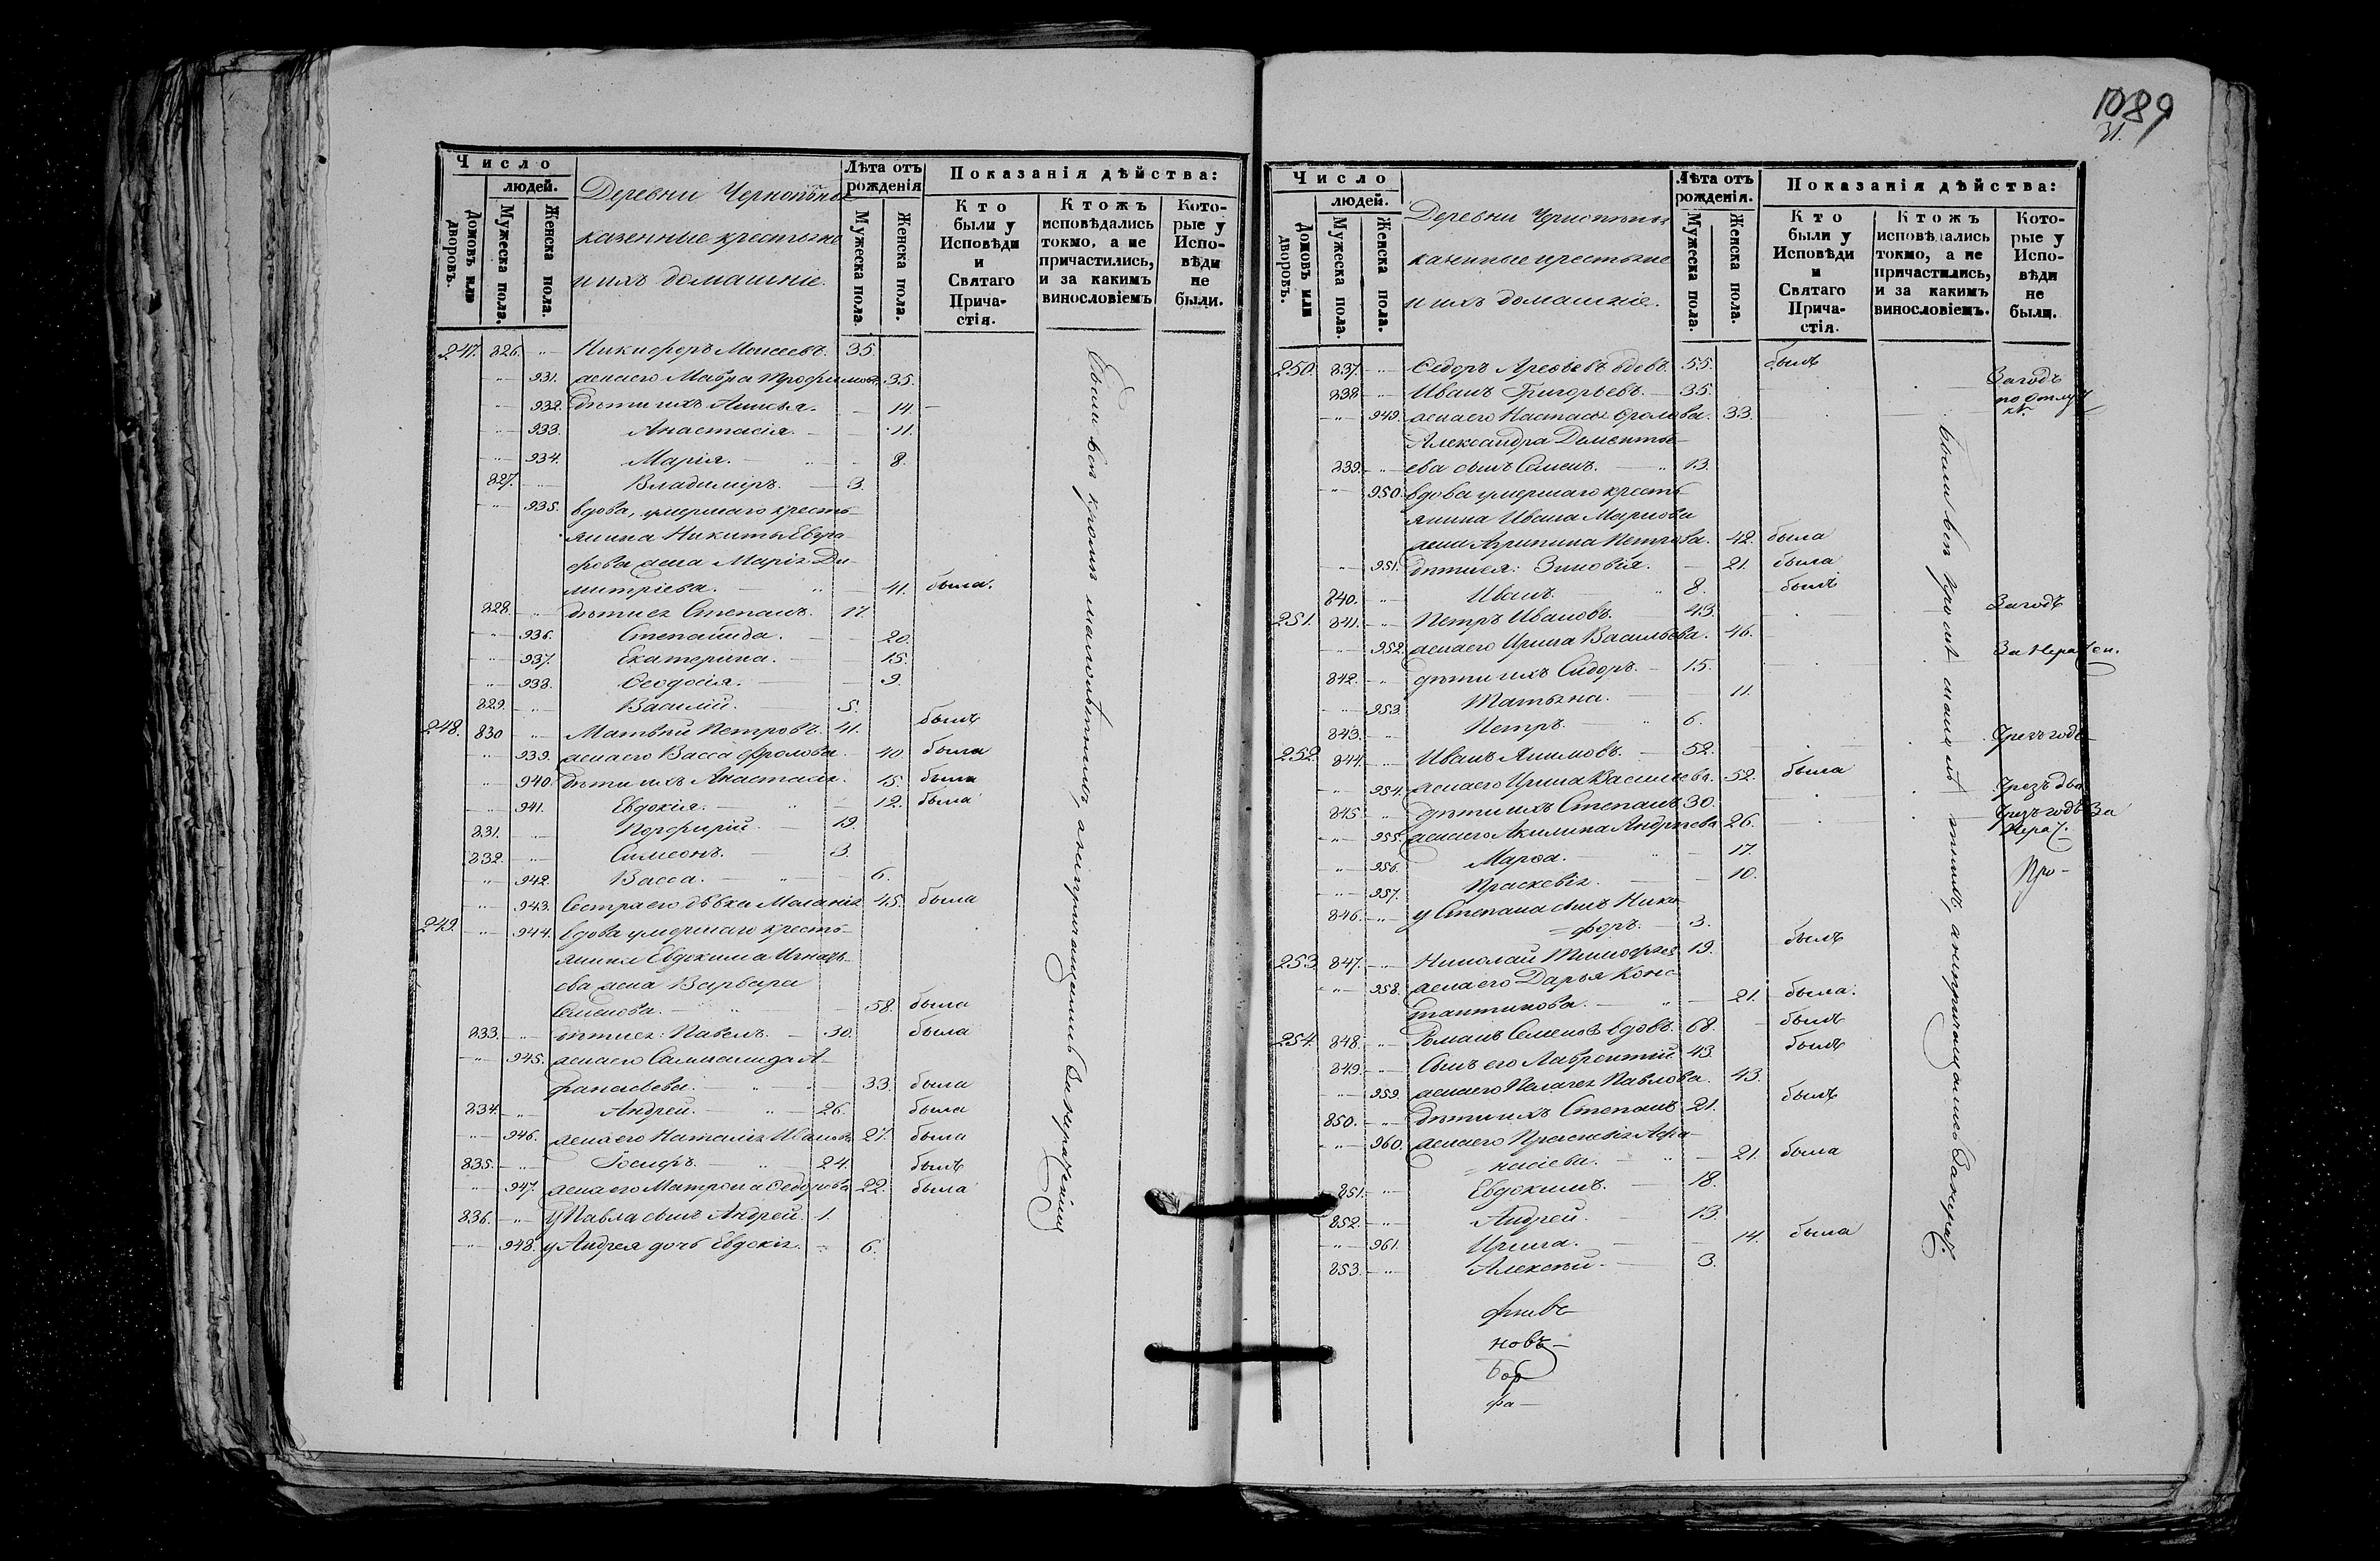 1089
31.
Число
людей.
Домовъ или дворовъ.
Мужеска пола.
Женска пола.
Деревни
казенные крестьяне
и ихъ домашніе.
Лѣта отъ рожденія
Мужеска пола.
Женска пола.
Показанія дѣйства:
Кто были у Исповѣди и Святаго Прича-стія.
Ктожъ исповѣдались токмо, а не причастились, и за какимъ винословіемъ
Кото-рые у Испо-вѣди не были.
247. 826. Никифоръ Моисеевъ. 35.
931. жена его Мавра Трофимова. 35.
932. дѣти ихъ 14.
933. Анастасія. 11.
934. Марія. 8.
827. Владиміръ. 3.
935. вдова, умершаго кресть-
янина Никиты Евгра-
фова жена Марія Ди-
митріева. 41. была.
828. дѣти ея Степанъ. 17.
936. Степанида. 20.
937. Екатерина. 15.
938. Ѳеодосія. 9.
829. Василій. 5.
248. 830 Матвѣй Петровъ. 41. былъ
939. жена его Васса Фролова. 40. была
940. дѣти ихъ Анастасія. 15. была
941. Евдокія. 12. была
831. Порфирій. 19.
832. Симеонъ. 3.
942. Васса. 6.
943. Сестра его дѣвка Маланія 45. была
249. 944. вдова умершаго кресть-
янина Евдокима Игнать-
ева жена Варвара
Семенова. 58. была
833. дѣти ея: Павелъ. 30. была
945. жена его А-
фанасьева. 33. была
834. Андрей. 26. была
946. жена его Наталія Иванова 27. была
835. Іосифъ. 24. былъ
947. жена его Матрона Ѳедорова 22. была
836. у Павла сынъ Андрей. 1.
948. у Андрея дочь Евдокія. 6.
были всѣ кромѣ малолѣтнихъ, а непричащались за нераченіемъ
Число
людей.
Домовъ или дворовъ.
Мужеска пола.
Женска пола.
Деревни
казенные крестьяне
и ихъ домашніе.
Лѣта отъ рожденія.
Мужеска пола.
Женска пола.
Показанія дѣйства:
Кто были у Исповѣди и Святаго Прича-стія.
Ктожъ исповѣдались токмо, а не причастились, и за какимъ винословіемъ.
Кото-рые у Испо-вѣди не были.
250. 837. Ѳедоръ вдовъ. 55. былъ
838. Иванъ Григорьевъ. 35. За годъ по отлучкѣ
949. жена его Настасья Фролова. 33.
Александра Дементье-
839. ева сынъ Семенъ. 13.
950. вдова умершаго кресть-
янина Ивана Маркова
жена Агрипина Петрова. 42. была
951. дѣти ея: Зиновія. 21. была
840. Иванъ. 8. былъ
251. 841. Петръ Ивановъ. 43. За годъ
952. жена его Ирина Васильева. 46.
842. дѣти ихъ Сидоръ. 15. За Нерачен.
953. Татьяна. 11.
843. Петръ. 6.
252. 844. Иванъ Якимовъ. 52. Чрезъ годъ
954. жена его Ирина Васильева. 52. была
845. дѣти ихъ Степанъ 30. Чрезъ два
955. жена его Акилина Андреева 26. Чрезъ годъ За Нерач.
956. Марѳа. 17.
957. Праскевія. 10.
846. у Степана сынъ Ники-
форъ. 3.
253. 847. Николай Тимофѣевъ 19. былъ
958. жена его Дарья Конс-
тантинова. 21. была.
254. 848. Романъ Семеновъ вдовъ. 68. былъ
849. Сынъ его Лаврентій 43. былъ
959. жена его Пелагея Павлова. 43.
850. дѣти ихъ Степанъ 21. былъ
960. жена его Праскевія Афа-
насіева. 21. была
851. Евдокимъ. 18.
852. Андрей. 13.
961. Ирина. 14. была
853. Алексѣй. 3.
были всѣ кромѣ малолѣтнихъ, а непричащались за нерач.
Про-
новъ-
Бор
фа-